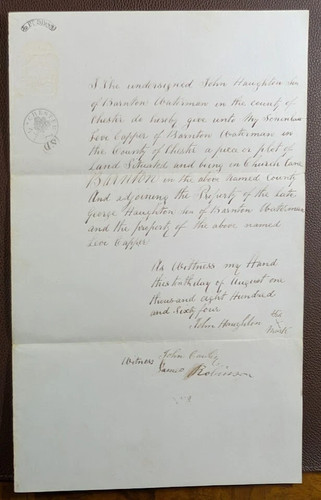 I The undersigned John Haughton sen
of Barnton Waterman in the county of
Chester do hereby give unto My Soninlaw
Levi Capper of Barnton Waterman in
the County of Chester a piece or plot of
Land Situated and being in Church Lane
BARNTON in the above named County
And adjoining the Property of the Late
george Haughton sen of Barnton Waterman
and the property of the above named
Levi Capper
As Wittness my Hand
this day of August one
thousand Eight Hundred
and Sixty four
John Haughton His
Mark
Witness John
James Robinson